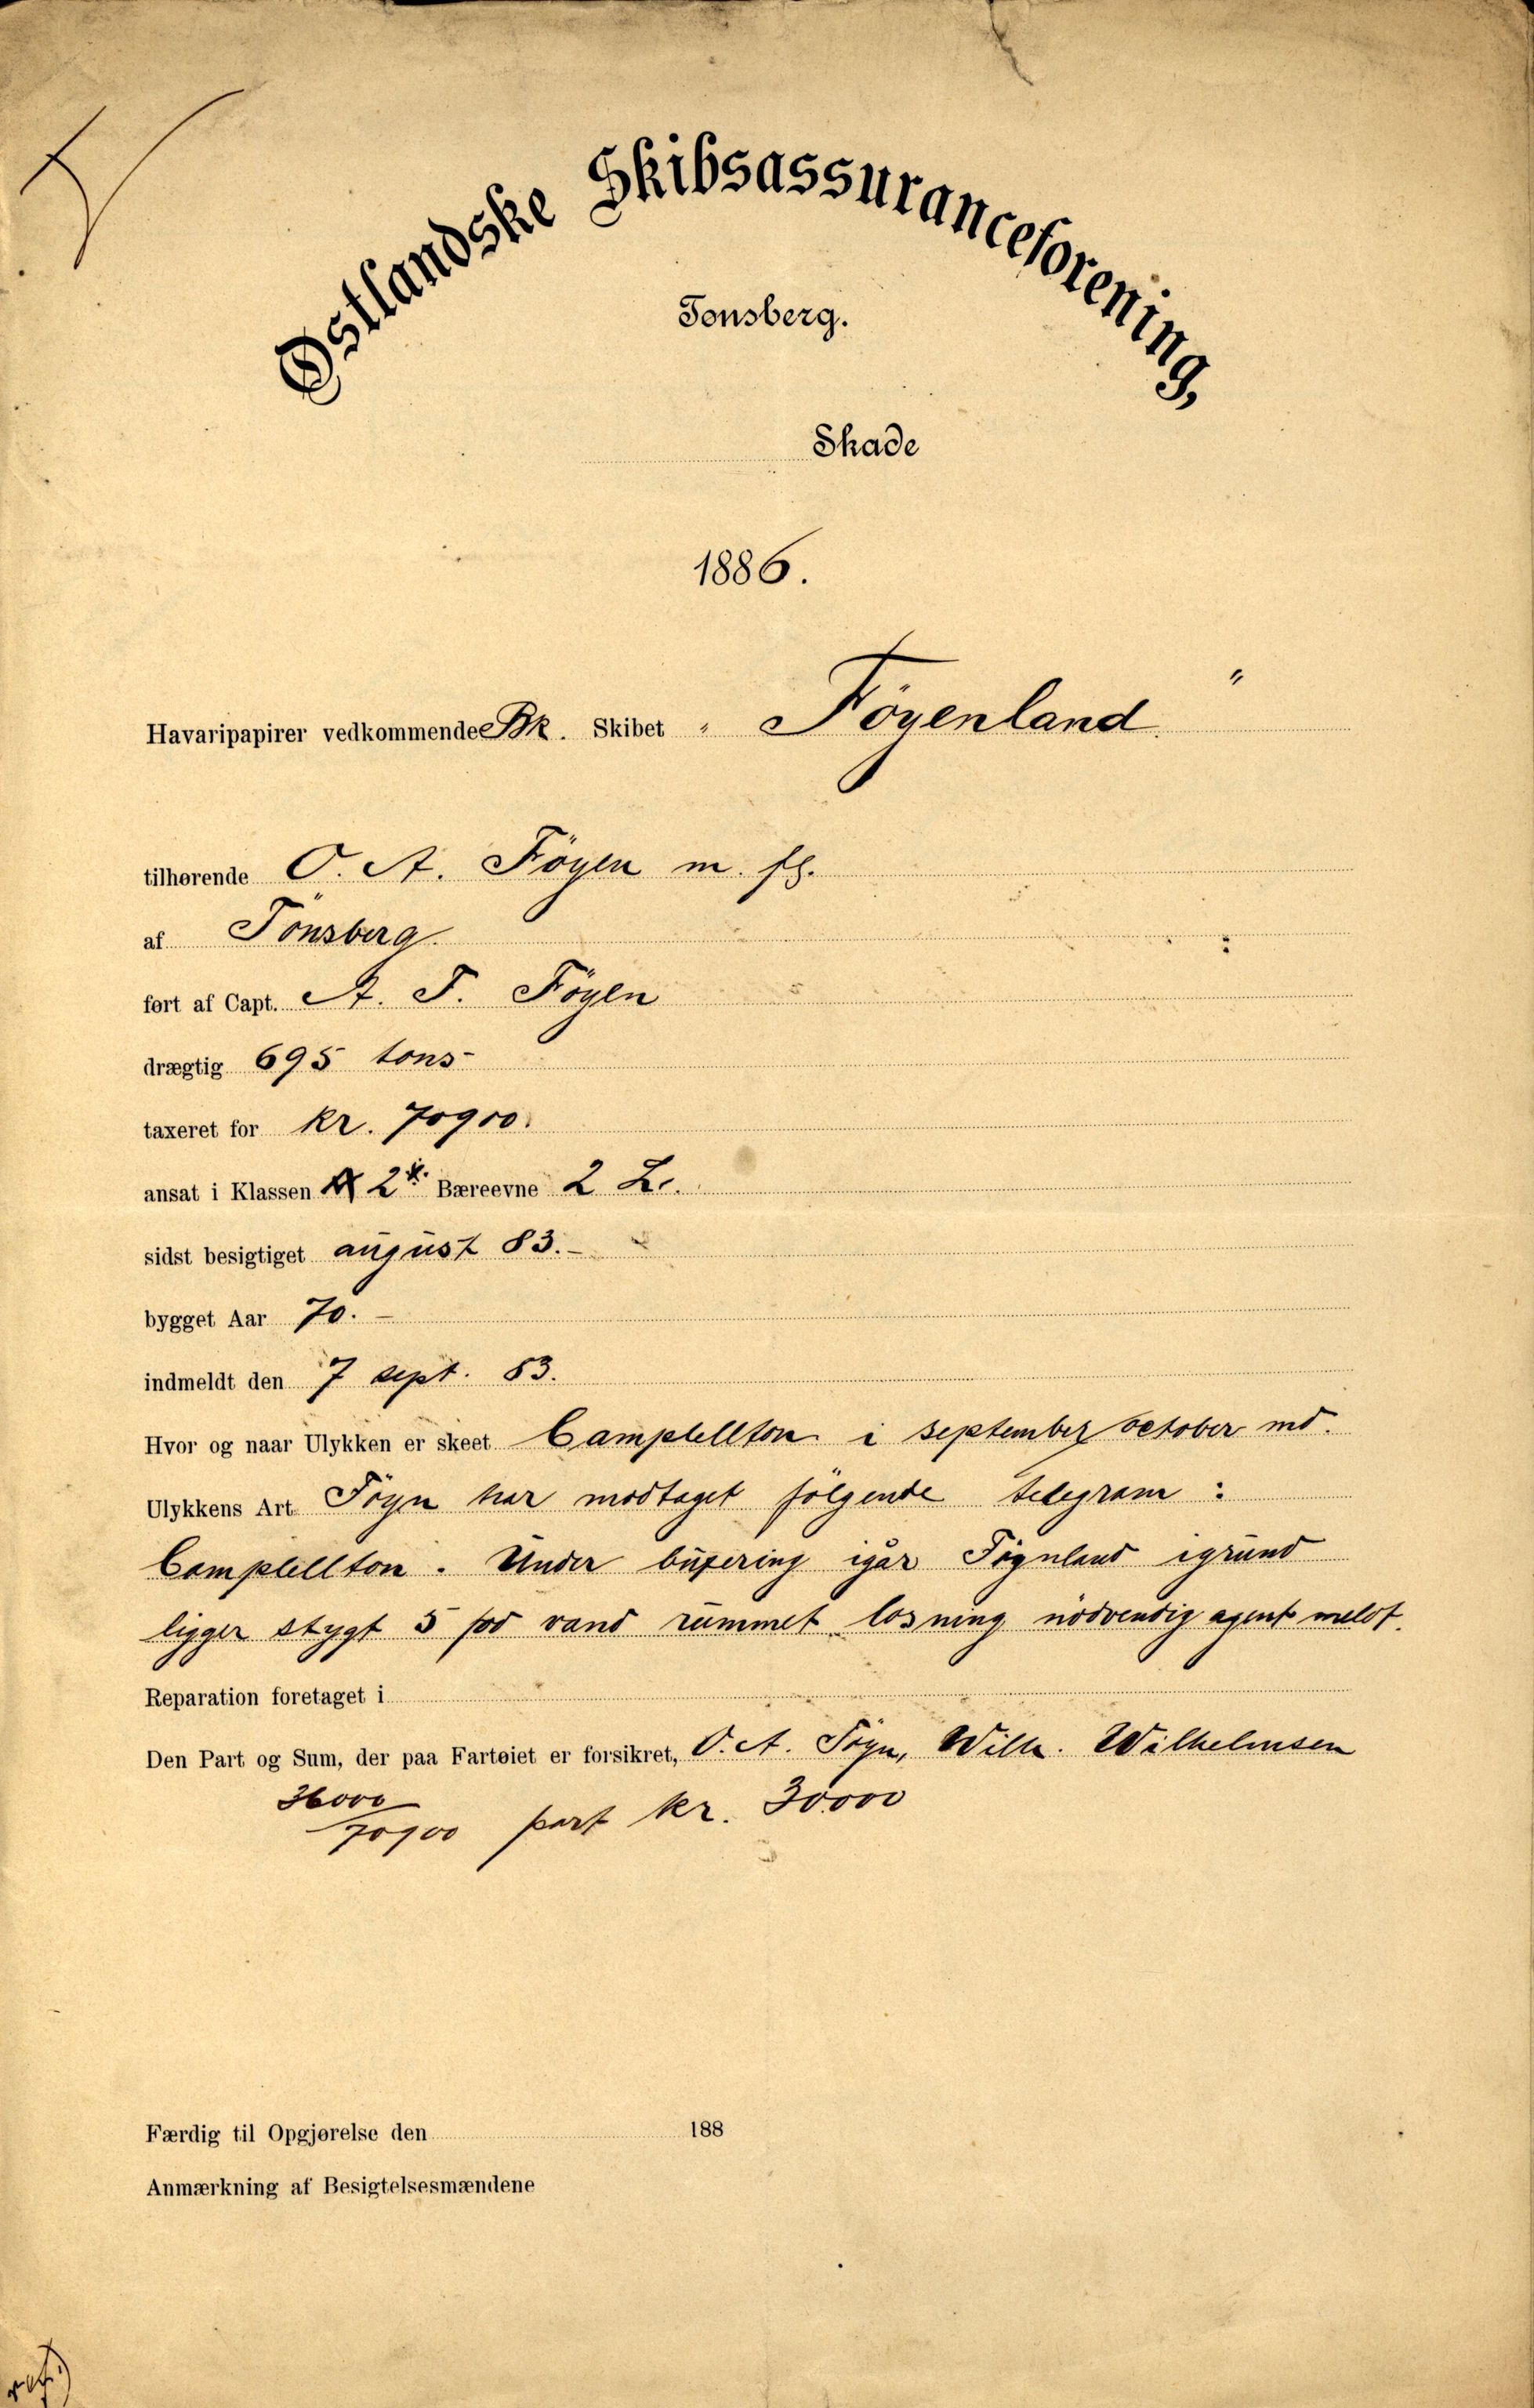 Østlandske Skibsassuranceforening,
Tønsberg.
Skade
1886.
Havaripapirer vedkommende Bk. Skibet " Föyenland "
tilhørende O. A. Föyen m. fl.
af Tönsberg
ført af Capt. A. F. Föyen
drægtig 695 tons
taxeret for kr. 70900.
ansat i Klassen 2 Bæreevne 2 L.
sidst besigtiget august 83. -
bygget Aar 70. -
indmeldt den 7 sept. 83.
Hvor og naar Ulykken er skeet Campbellton i september october md.
Ulykkens Art Föyn har modtaget fölgende telegram :
Campbellton. Under buxering igår Föynland igrund
ligger stygt 5 fod vand rummet losning nödvendig agent meldt.
Reparation foretaget i
Den Part og Sum, der paa Fartøiet er forsikret, O. A. Föyn, Wilh. Wilhelmsen
36000/70900 part kr. 30000
Færdig til Opgjørelse den 188
Anmærkning af Besigtelsesmændene